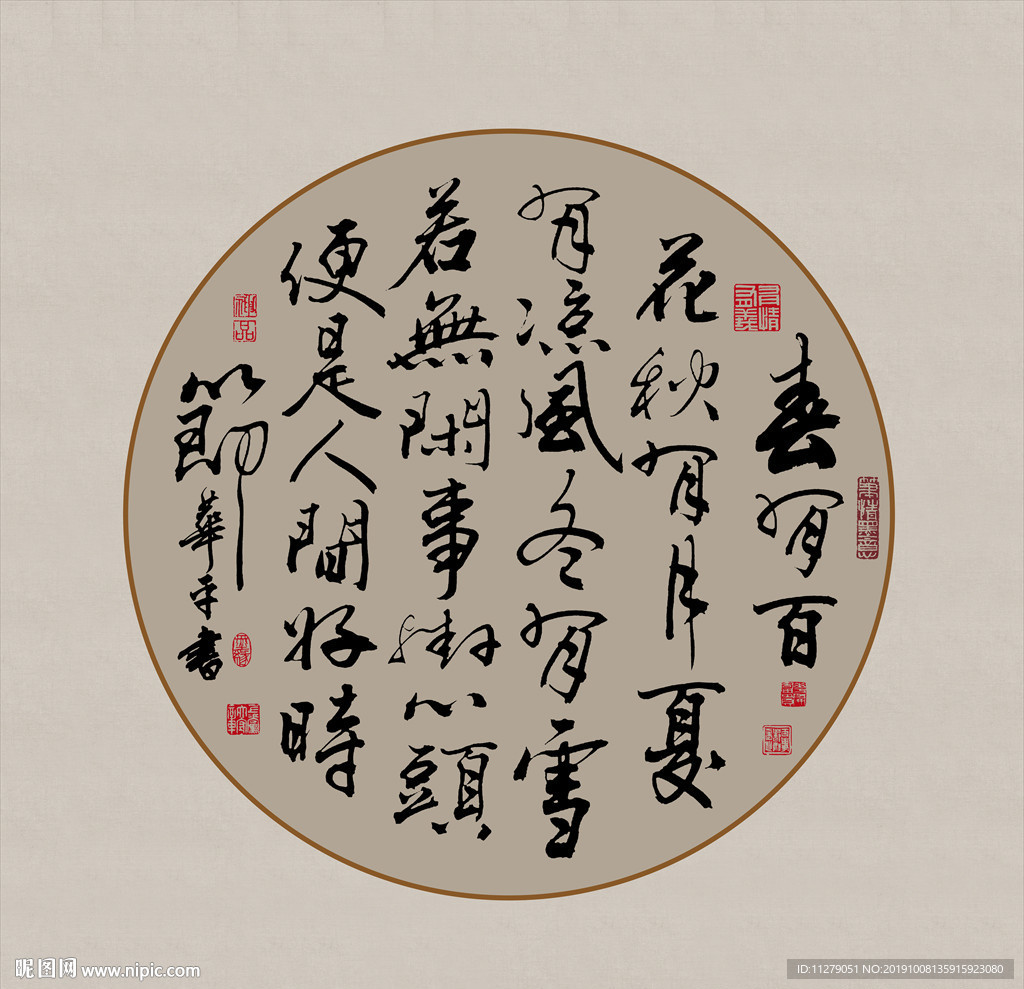 春有百
花秋有月夏
有凉風冬有雪
若無閑事掛心頭
便是人間好時
節
華平書
昵图网 www.nipic.com
ID:11279051 NO:20191008135915923080